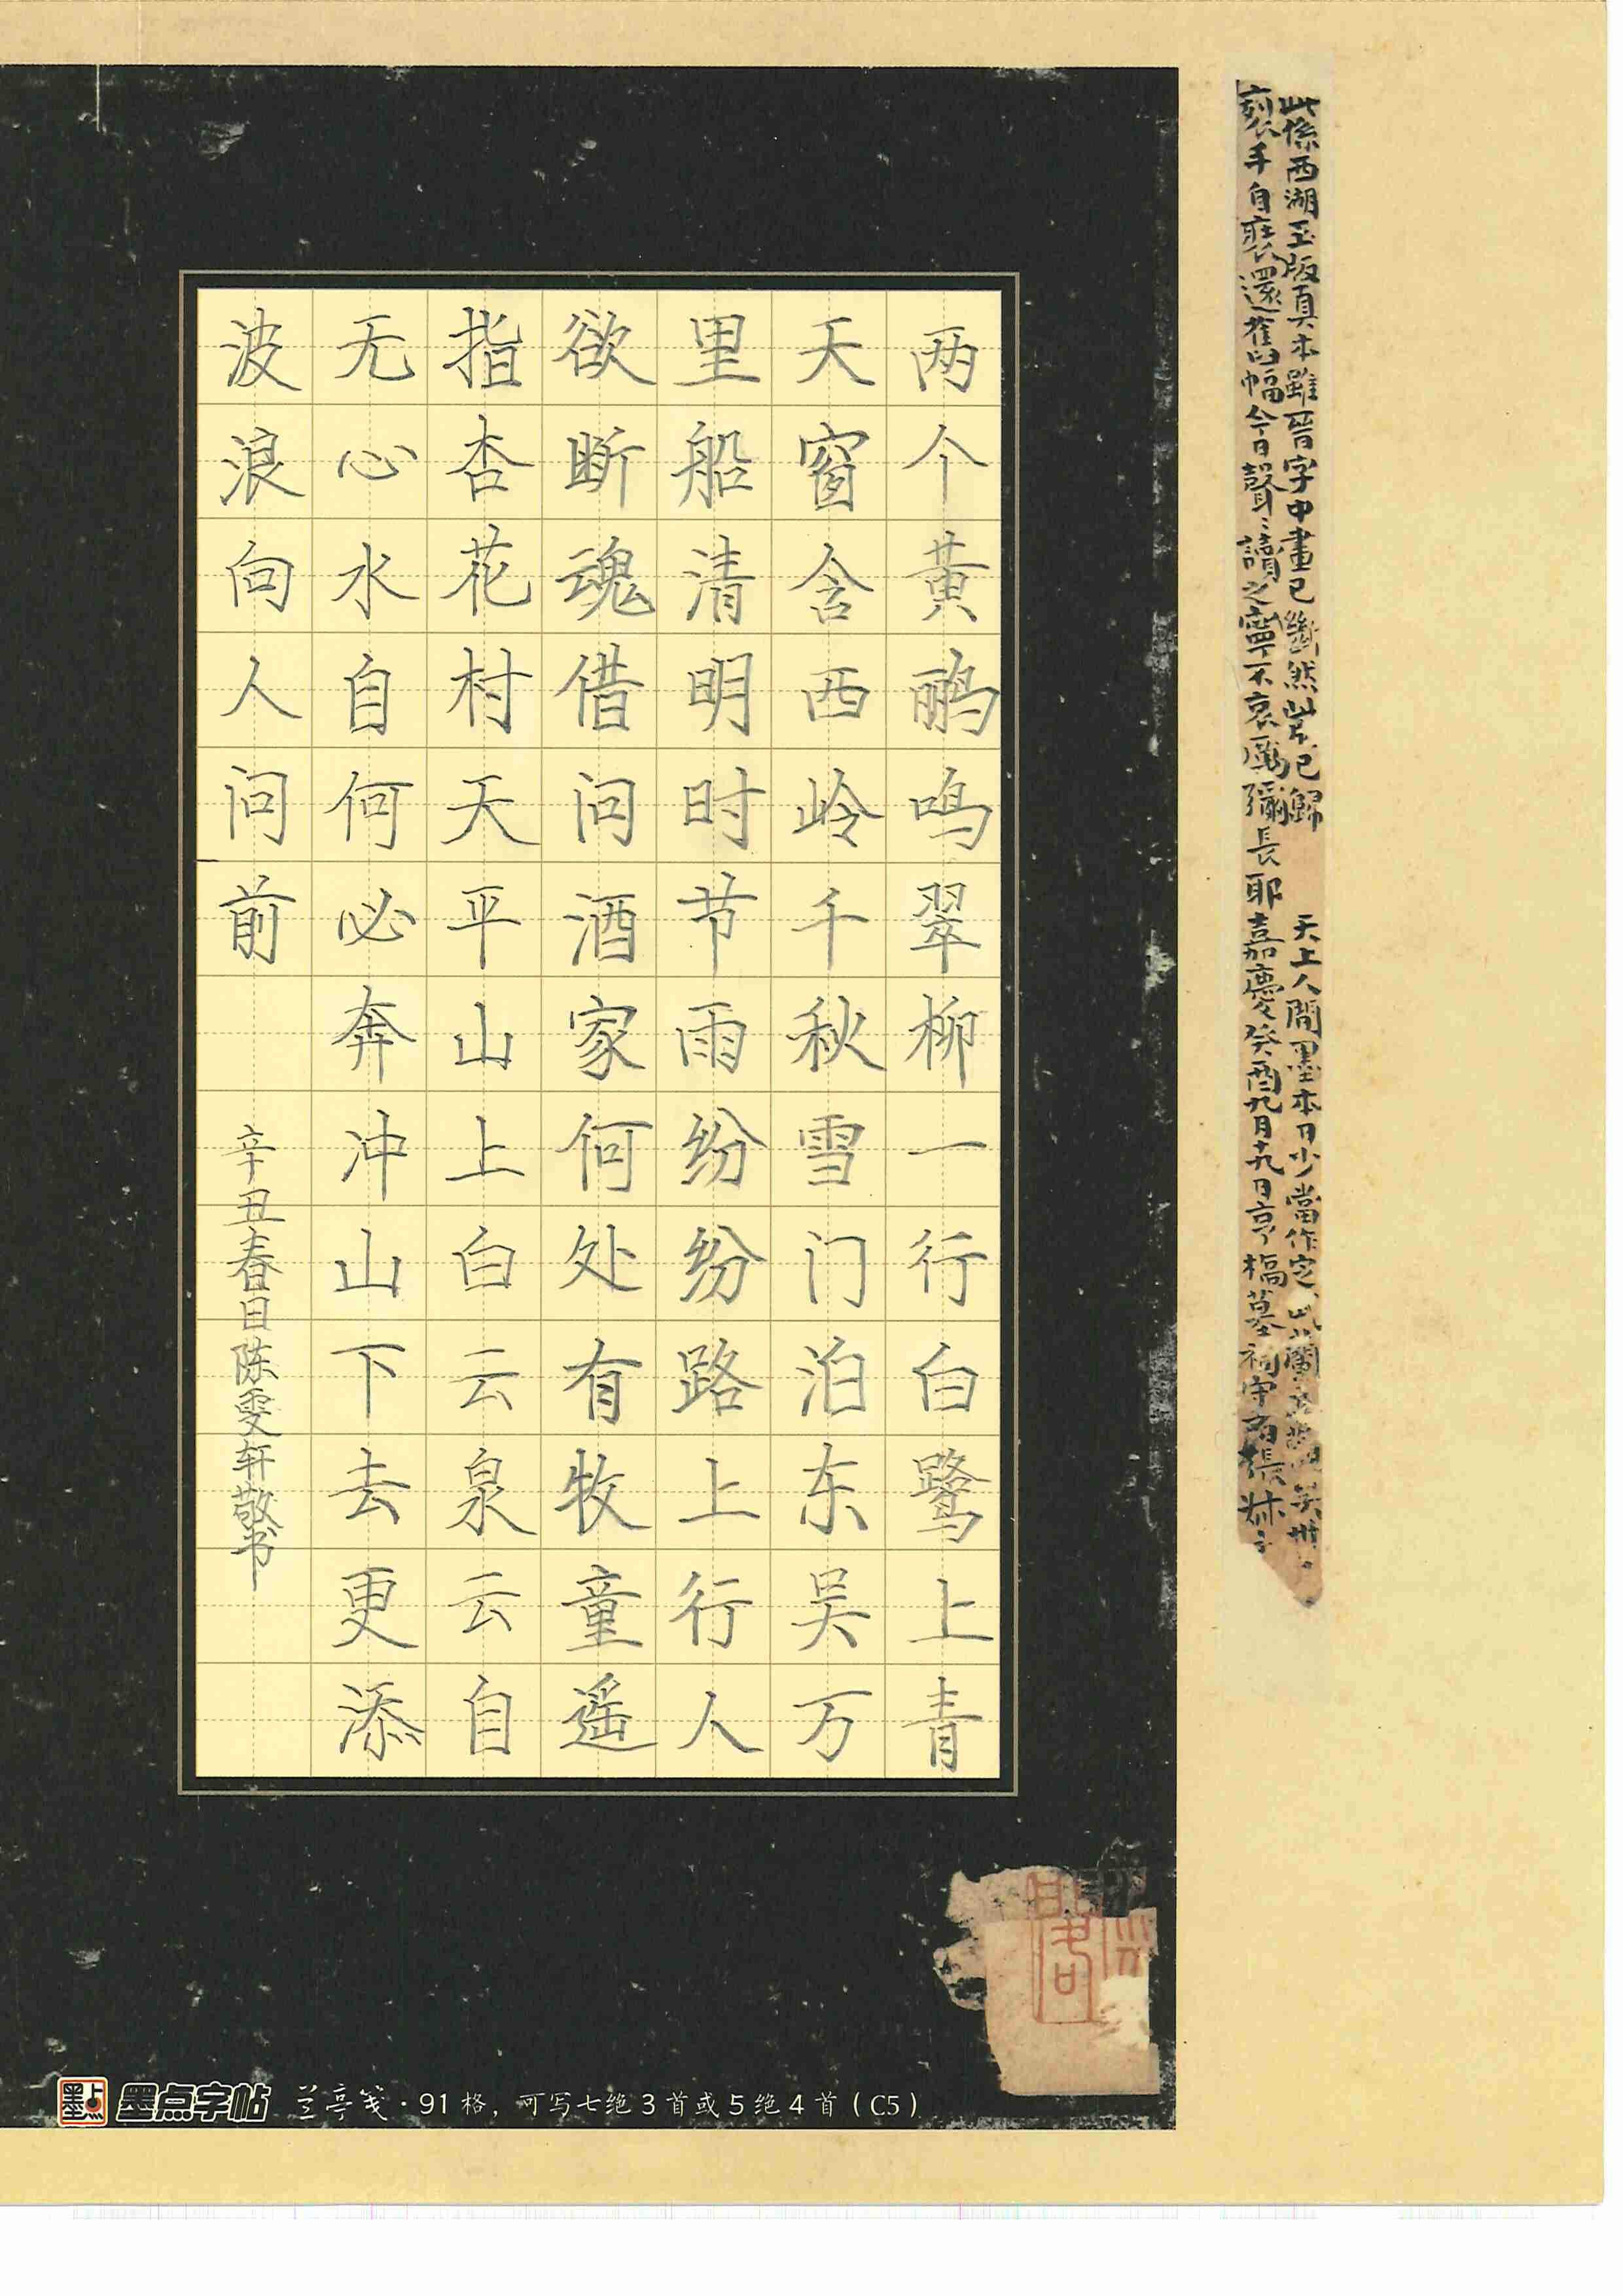 此係西湖玉版真本雖晉字中畫已斷然此片已歸 天上人間墨本日少當作定
手自裝還舊四幅今日聲讀之寧不哀厲彌長耶嘉慶癸酉九月十九日亨橋墓祠守
两个黄鹂鸣翠柳一行白鹭上青
天窗含西岭千秋雪门泊东吴万
里船清明时节雨纷纷路上行人
欲断魂借问酒家何处有牧童遥
指杏花村天平山上白云泉云自
无心水自何必奔冲山下去更添
波浪向人问前
辛丑春日陈雯轩敬书
墨点 墨点字帖 兰亭笺·91格，可写七绝3首或5绝4首（C5）